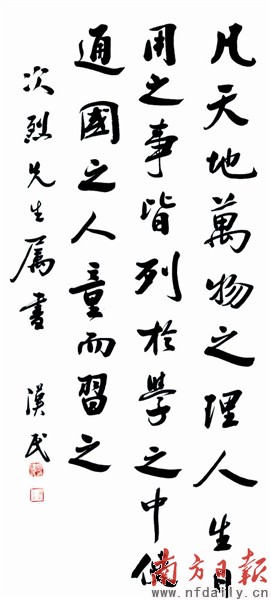 凡天地萬物之理人生日
用之事皆列於學之中
通國之人童而習之
次烈先生屬書
漢民
南方日报
www.nfdaily.cn